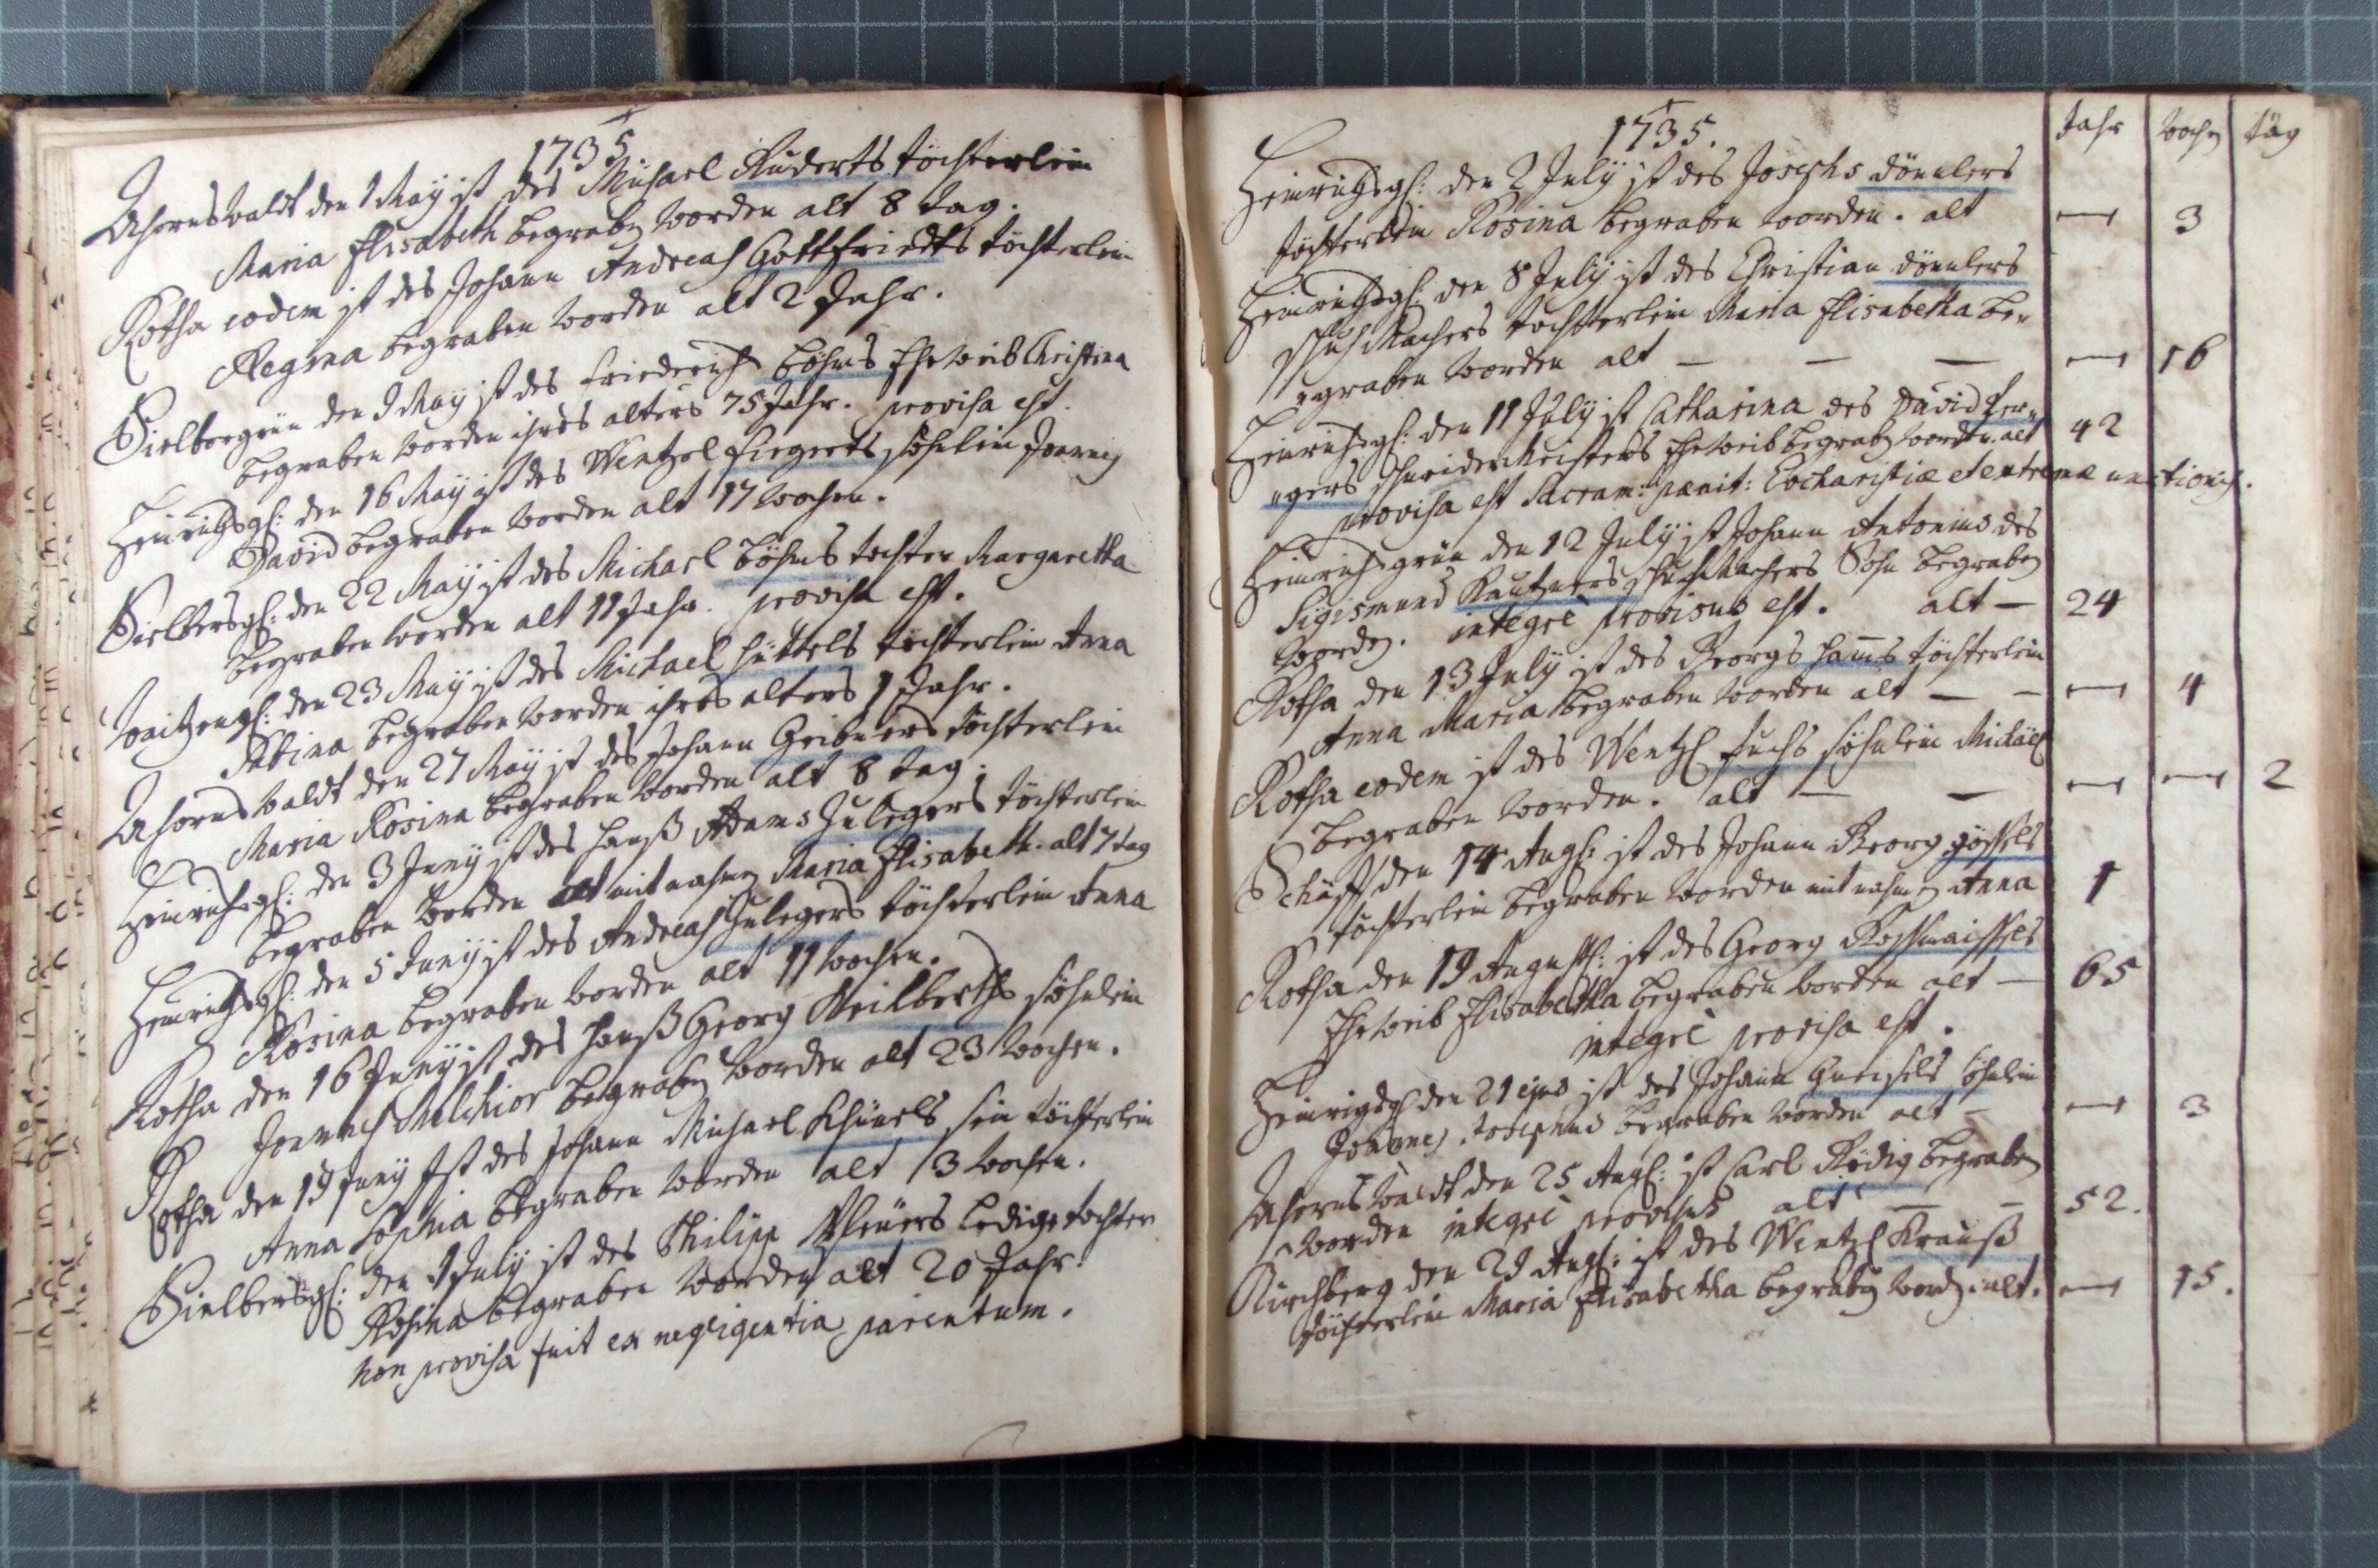 1735
Ahornswaldt den 1 May ist des Michael Ruderts töchterlein
Maria Elisabeth begraben worden alt 8 tag.
Rotha eodem ist des Johann Andreas Gottfriedts töchterlein
Regina begraben worden alt 2 Jahr.
Sielbergrün den 9 May ist des Friederich Böhms Eheweib Christina
begraben worden ihres alters 75 Jahr. provisa est.
Heinrichsgl: den 16 May ist des Wentzel Siegerts söhnlein Joannes
David begraben worden alt 17 wochen.
Sielbersgl: den 22 May ist des Michael Böhms tochter Margaretha
begraben worden alt 11 Jahr. provisa est.
den 23 May ist des Michael Hüttels töchterlein Anna
Sabina begraben worden ihres alters 1 Jahr.
Ahornswaldt den 27 May ist des Johann Geibners töchterlein
Maria Rosina begraben worden alt 8 tag.
Heinrichsgl: den 3 Juny ist des Hanß Adams Zulegers töchterlein
begraben worden mit nahmen Maria Elisabeth. alt 7 tag
Heinrichsgl: den 5 Juny ist des Andreas Zulegers töchterlein Anna
Rosina begraben worden alt 11 wochen.
Rotha den 16 Juny ist des Hanß Georg Weilberths söhnlein
Joannes Melchior begraben worden alt 23 wochen.
Rotha den 19 Juny ist des Johann Michael sein töchterlein
Anna Sophia begraben worden alt 3 wochen.
Sielbersgl: den 1 July ist des Philipp Meüers ledige tochter
Rosina begraben worden alt 20 Jahr.
non provisa fuit ex negligentia parentum.
1735.
Jahr wochen täg
Heinrichsgl: den 2 July ist des Josephs dönnlers
töchterlein Rosina begraben worden. alt — 3
Heinrichsgl: den 8 July ist des Christian dönnlers
schuhmachers töchterlein Maria Elisabetha be-
graben worden alt — — — — 16
Heinrichsgl: den 11 July ist Catharina des David
gers schneidermeisters Eheweib begraben worden. alt 42
provisa est Sacram: pœnit: Eucharistiæ et extremæ unctionis.
Heinrichsgrün den 12 July ist Johann Antonius des
Sigismund Kautzners schuhmachers Sohn begraben
worden. integrè provisus est. alt — 24
Rotha den 13 July ist des Georgs Ham̄s töchterlein
Anna Maria begraben worden alt — — — 4
Rotha eodem ist des Wentzl Fuchs söhnlein Michäel
begraben worden. alt — — — — 2
Schäff den 14 Aug: ist des Johann Georg
töchterlein begraben worden mit nahmen Anna 1
Rotha den 19 August: ist des Georg Rossmaissls
Eheweib Elisabetha begraben worden alt — 65
integrè provisa est.
Heinrigsgl den 21 ejus ist des Johann Gneisels söhnlein
Joannes Josephus begraben worden alt — — 3
Ahornswaldt den 25 Aug: ist Carl Rödig begraben
worden integrè provisus alt — — 52.
Kirchberg den 29 Aug: ist des Wentzl Krauß
töchterlein Maria Elisabetha begraben word. alt. — 15.